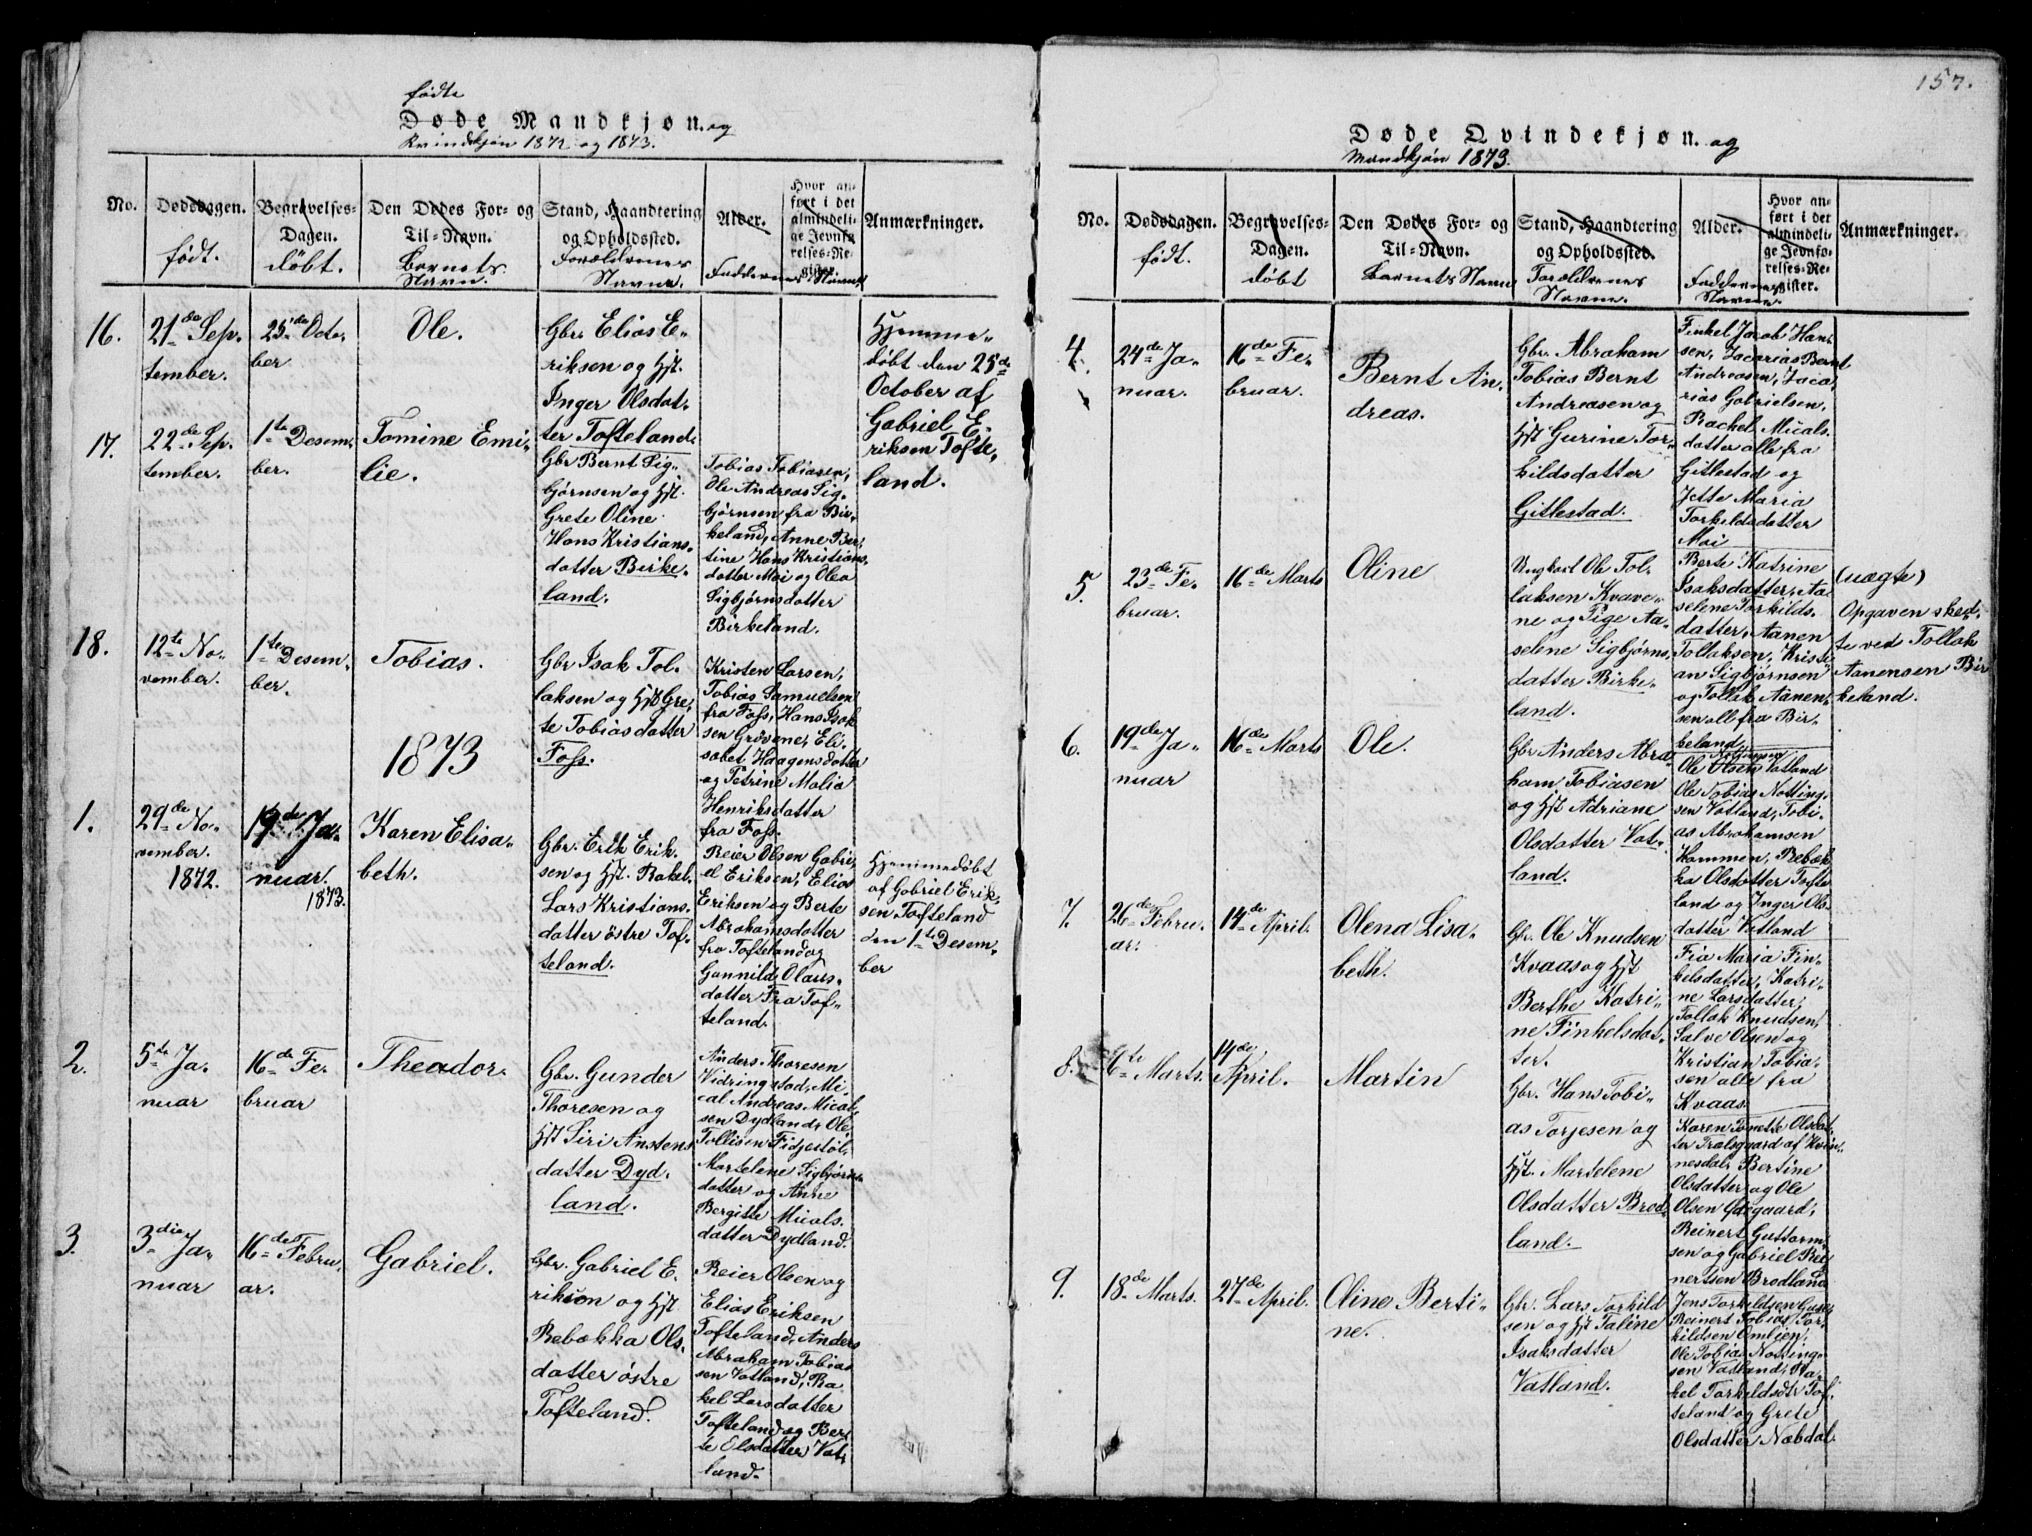 157.
født
Døde Mandkjøn. og
Kvindkjøn 1872 og 1873.
No.
Dødsdagen.
født.
Begravelses-
Dagen.
døbt.
Den Dødes For- og
Til-Navn.
Barnets
Navn.
Stand, Haandtering
og Opholdssted.
Forældrenes
Navne.
Alder.
Hvor an-
ført i det
almindeli-
ge Jevnfø-
relses-Re-
gister.
Faddernes Navne
Anmærkninger.
16.
21de Sep-
tember.
25de Octo-
ber
Ole.
Gbr. Elias E-
riksen og Hst.
Inger Olsdat-
ter Tofteland.
Hjemme-
døbt den 25de
October af
Gabriel E-
riksen Tofte-
land.
17.
22de Sep-
tember.
1ste Desem-
ber.
Tomine Emi-
lie.
Gbr Bernt Sig-
bjørnsen og Hst.
Grete Oline
Hans Kristians-
datter Birke-
land.
Tobias Tobiasen,
Ole Andreas Sig-
bjørnsen fra Bir-
keland, Anne Ber-
tine Hans Kristians-
datter Moi og Olea
Sigbjørnsdatter
Birkeland.
18.
12te No-
vember.
1ste Desem-
ber.
Tobias.
Gbr Isak Tol-
laksen og Hst Gre-
te Tobiasdatter
Foss.
Kristen Larsen,
Tobias Samuelsen
fra Foss, Hans Isak-
sen Grøvene, Eli-
sabet Haagensdatter
og Petrine Malia
Henriksdatter
fra Foss.
1873
1.
29de No-
vember.
1872.
19de Ja-
nuar.
1873.
Karen Elisa-
beth.
Gbr. Erik Erik-
sen og Hst. Rakel
Lars Kristians-
datter østre Tof-
teland.
Reier Olsen Gabri-
el Eriksen, Elias
Eriksen og Berte
Abrahamsdatter
fra Tofteland og
Gunnild Olaus-
datter Fra Tof-
teland.
Hjemmedøbt
af Gabriel Erik-
sen Tofteland
den 1ste Desem-
ber
2.
5te Ja-
nuar
16de Fe-
bruar
Theador.
Gbr. Gunder
Thoresen og
Hst Siri Anstens
datter Dyd-
land.
Anders Thoresen
Vidringstad, Mi-
cal Andreas Mical-
sen Dydland, Ole
Tollisen Fidjestøl,
Martelene Sigbjørns-
datter og Anne
Bergitte Micals-
datter Dydland.
3.
3die Ja-
nuar
16de Febru-
ar.
Gabriel.
Gbr. Gabriel E-
riksen og Hst
Rebækka Ols-
datter østre
Tofteland.
Reier Olsen og
Elias Eriksen
Tofteland, Anders
Abraham Tobias-
sen Vatland, Ra-
kel Larsdatter
Tofteland og Ber-
te Elsdatter Vat-
land.
Døde Qvindekjøn. og
Mandkjøn 1873.
No.
Dødsdagen.
født.
Begravelses-
Dagen.
døbt
Den Dødes For- og
Til-Navn.
Barnets Navn
Stand, Haandtering
og Opholdssted.
Forældrenes
Navne.
Alder.
Hvor an-
ført i det
almindeli-
ge Jevnfø-
relses-Re-
gister.
Faddernes
Navne.
Anmærkninger.
4.
24de Ja-
nuar.
16de Fe-
bruar.
Bernt An-
dreas.
Gbr. Abraham
Tobias Bernt
Andreasen og
Hst Gurine Tor-
kildsdatter
Gitlestad.
Finkel Jacob Han-
sen, Zacarias Bernt
Andreasen, Zaca-
rias Gabrielsen,
Rachel Micals-
datter alle fra
Gitlestad og
Jette Maria
Torkeldsdatter
Moi
5.
23de Fe-
bruar.
16de Marts
Oline
Ungkarl Ole Tol-
laksen Kvave-
ne og Pige Aa-
selene Sigbjørns-
datter Birke-
land.
Berte Katrine
Isaksdatter, Aa-
selene Torkilds-
datter, Aanen
Tollaksen, Kristi-
an Sigbjørnsen
og Tollak Aanen-
sen alle fra Bir-
keland
(uægte)
Opgaven skeet-
te ved Tollak
Aanensen Bir
keland.
6.
19de Ja-
nuar
16de Marts
Ole.
Gbr Anders Abra-
ham Tobiasen
og Hst Adriane
Olsdatter Vat-
land.
Ole Olsen Vatland
Ole Tobias Notting-
sen Vatland, Tobi-
as Abrahamsen
Hammen, Rebæk-
ka Olsdatter Tofte
land og Inger Ols-
datter Vatland
7.
26de Febru-
ar.
14de April.
Olena Lisa-
beth.
Gbr. Ole Knudsen
Kvaas og Hst
Berthe Katri-
ne Finkelsdat-
ter.
Fia Maria Fin-
kelsdatter, Katri-
ne Larsdatter,
Tollak Knudsen,
Salve Olsen og
Kristian Tobia-
sen alle fra
Kvaas.
8.
6te Marts.
14de
April.
Martin
Gbr. Hans Tobi-
as Torjesen og
Hst. Martelene
Olsdatter Brod-
land.
Karen Tonette Olsdat-
ter Tralsgaard af Kvin-
nesdal, Bertine
Olsdatter og Ole
Olsen Ødegaard,
Reinert Guttorm-
sen og Gabriel Rei-
nertsen Brodland
9.
18de Marts.
27de April.
Oline Berti-
ne.
Gbr. Lars Torkild
sen og Hst Taline
Isaksdatter
Vatland.
Jens Torkildsen
Reinert Tobias Tor-
kildsen Omlien,
Ole Tobias Notting-
sen Vatland, Ra-
kel Torkildsdtr Tof-
teland og Grete
Olsdatter Næbdal.